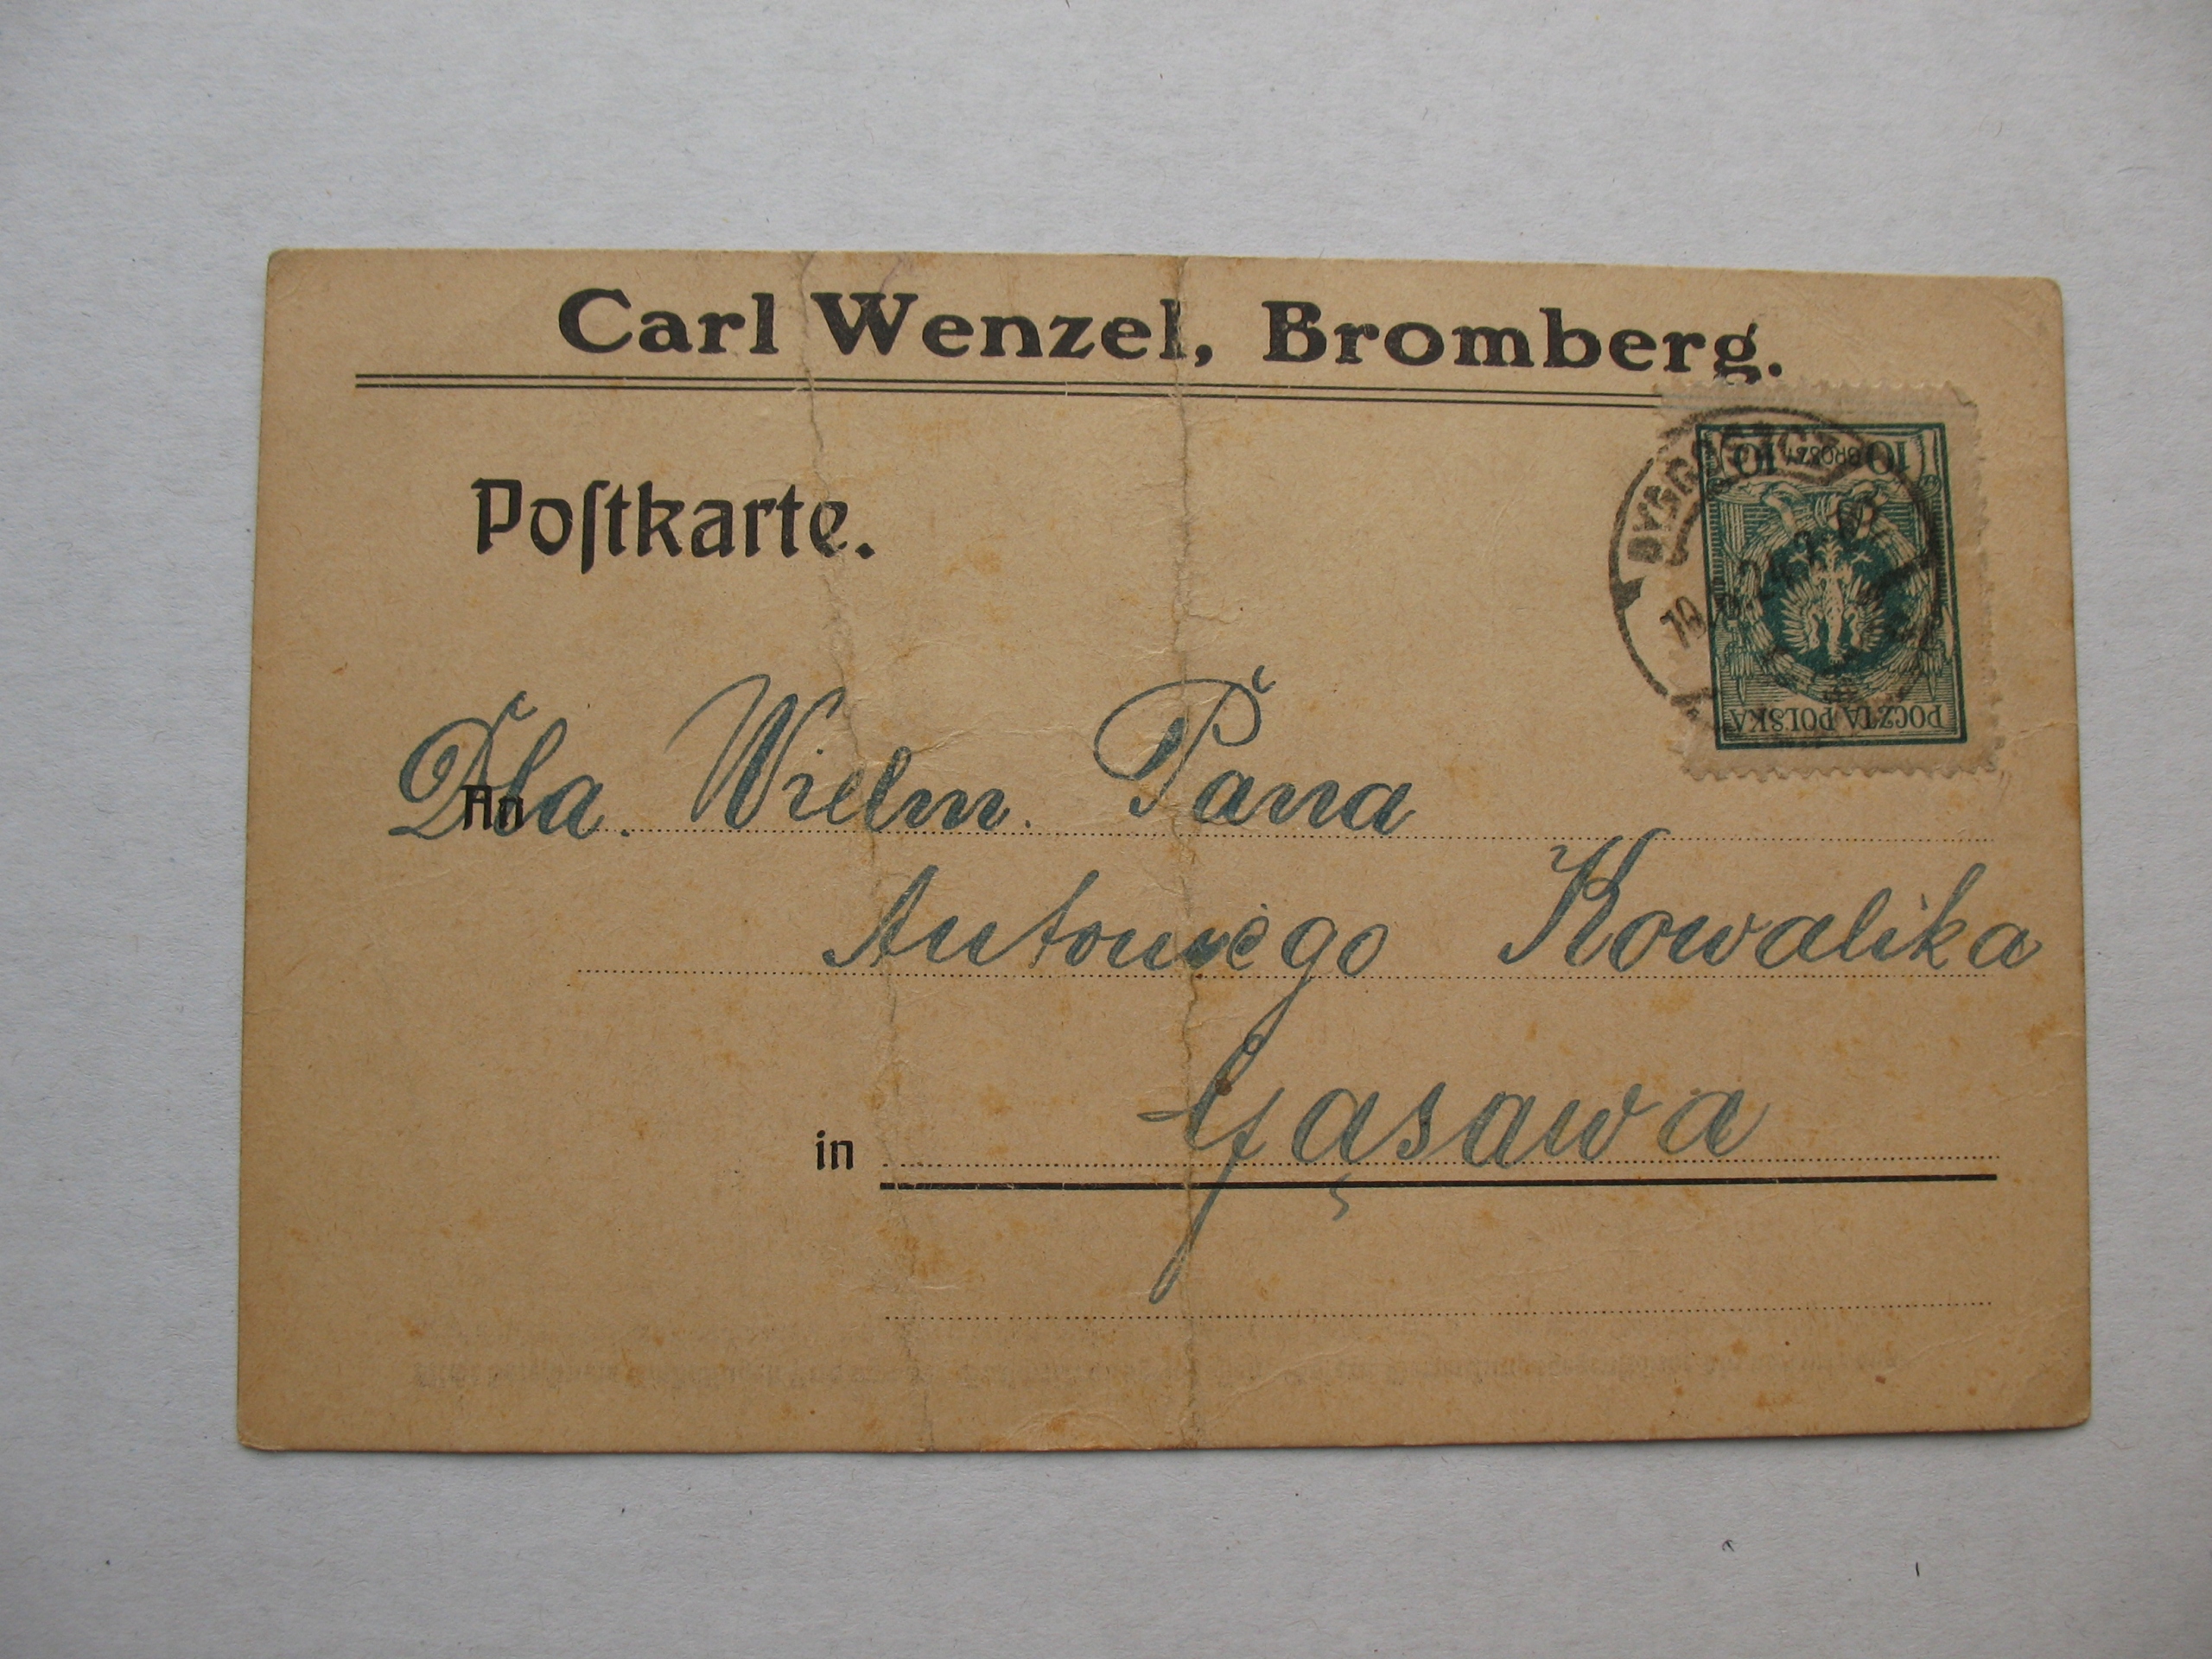 Carl Wenzel, Bromberg.
Poſtkarte.
10 GROSZY 10
POCZTA POLSKA
BYDGOSZCZ
An Dla. Wielm. Pana
Antoniego Kowalika
in Gąsawa